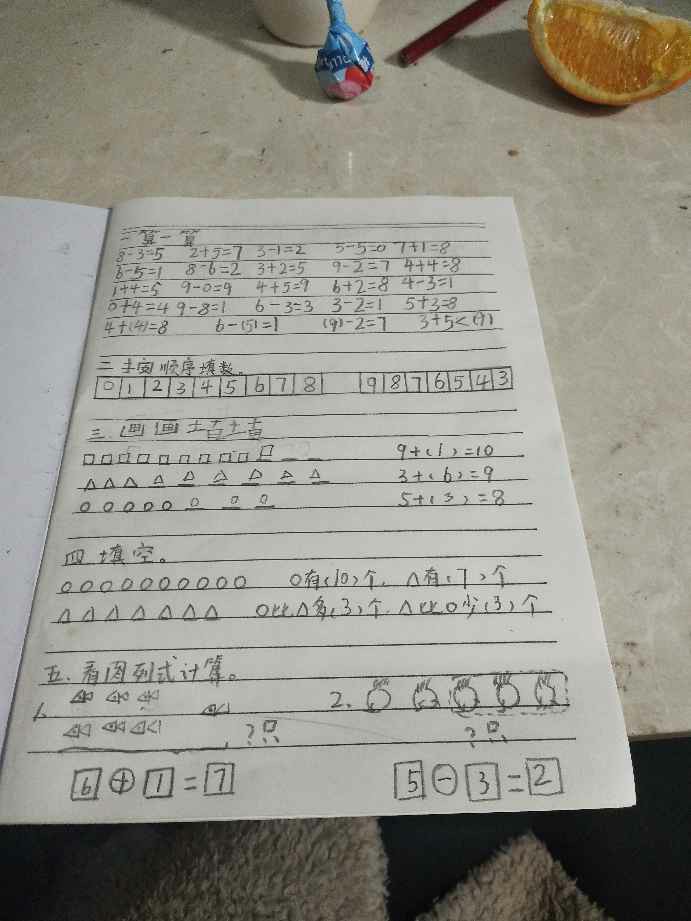 一 算一算
8-3=5 2+5=7 3-1=2 5-5=0 7+1=8
6-5=1 8-6=2 3+2=5 9-2=7 4+4=8
1+4=5 9-0=9 4+5=9 6+2=8 4-3=1
0+4=4 9-8=1 6-3=3 3-2=1 5+3=8
4+(4)=8 6-(5)=1 (9)-2=7 3+5<(9)
二 按顺序填数。
0 1 2 3 4 5 6 7 8 9 8 7 6 5 4 3
三.画画填填
9+(1)=10
3+(6)=9
5+(3)=8
四 填空。
○有(10)个. △有(7)个
○比△多(3)个. △比○少(3)个
五.看图列式计算。
1. 2.
?只 ?只
6+1=7 5-3=2